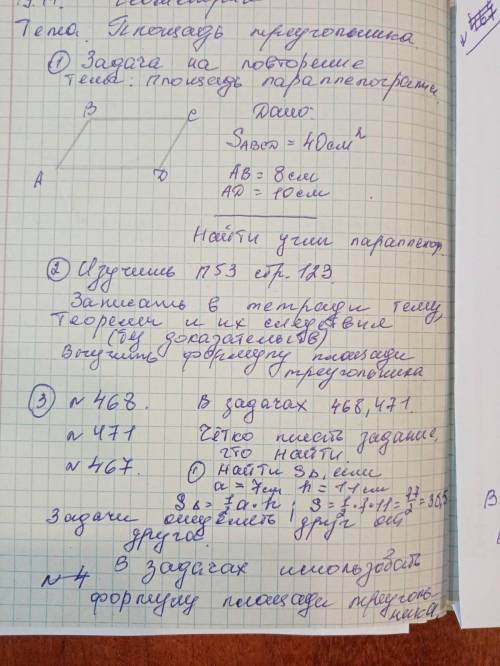 Тема: Площадь треугольника.
① Задача на повторение
Тема: площадь параллелограмма
B C
A D
Дано:
S ABCD = 40см²
AB = 8см
AD = 10см
Найти углы параллелогр.
② Изучить П53 стр. 123.
Записать в тетради тему,
теоремы и их следствия
(без доказательств)
Выучить формулу площади
треугольника
③ №468. В задачах 468, 471.
№471 Чётко писать задание,
что найти.
№467. ① Найти S∆, если
a = 7см h = 11см
S∆ = 1/2 a·h ; S = 1/2·7·11 = 77/2 = 38,5
Задачи отделять друг от
друга.
№4 В задачах использовать
формулу площади треуголь-
ника
В